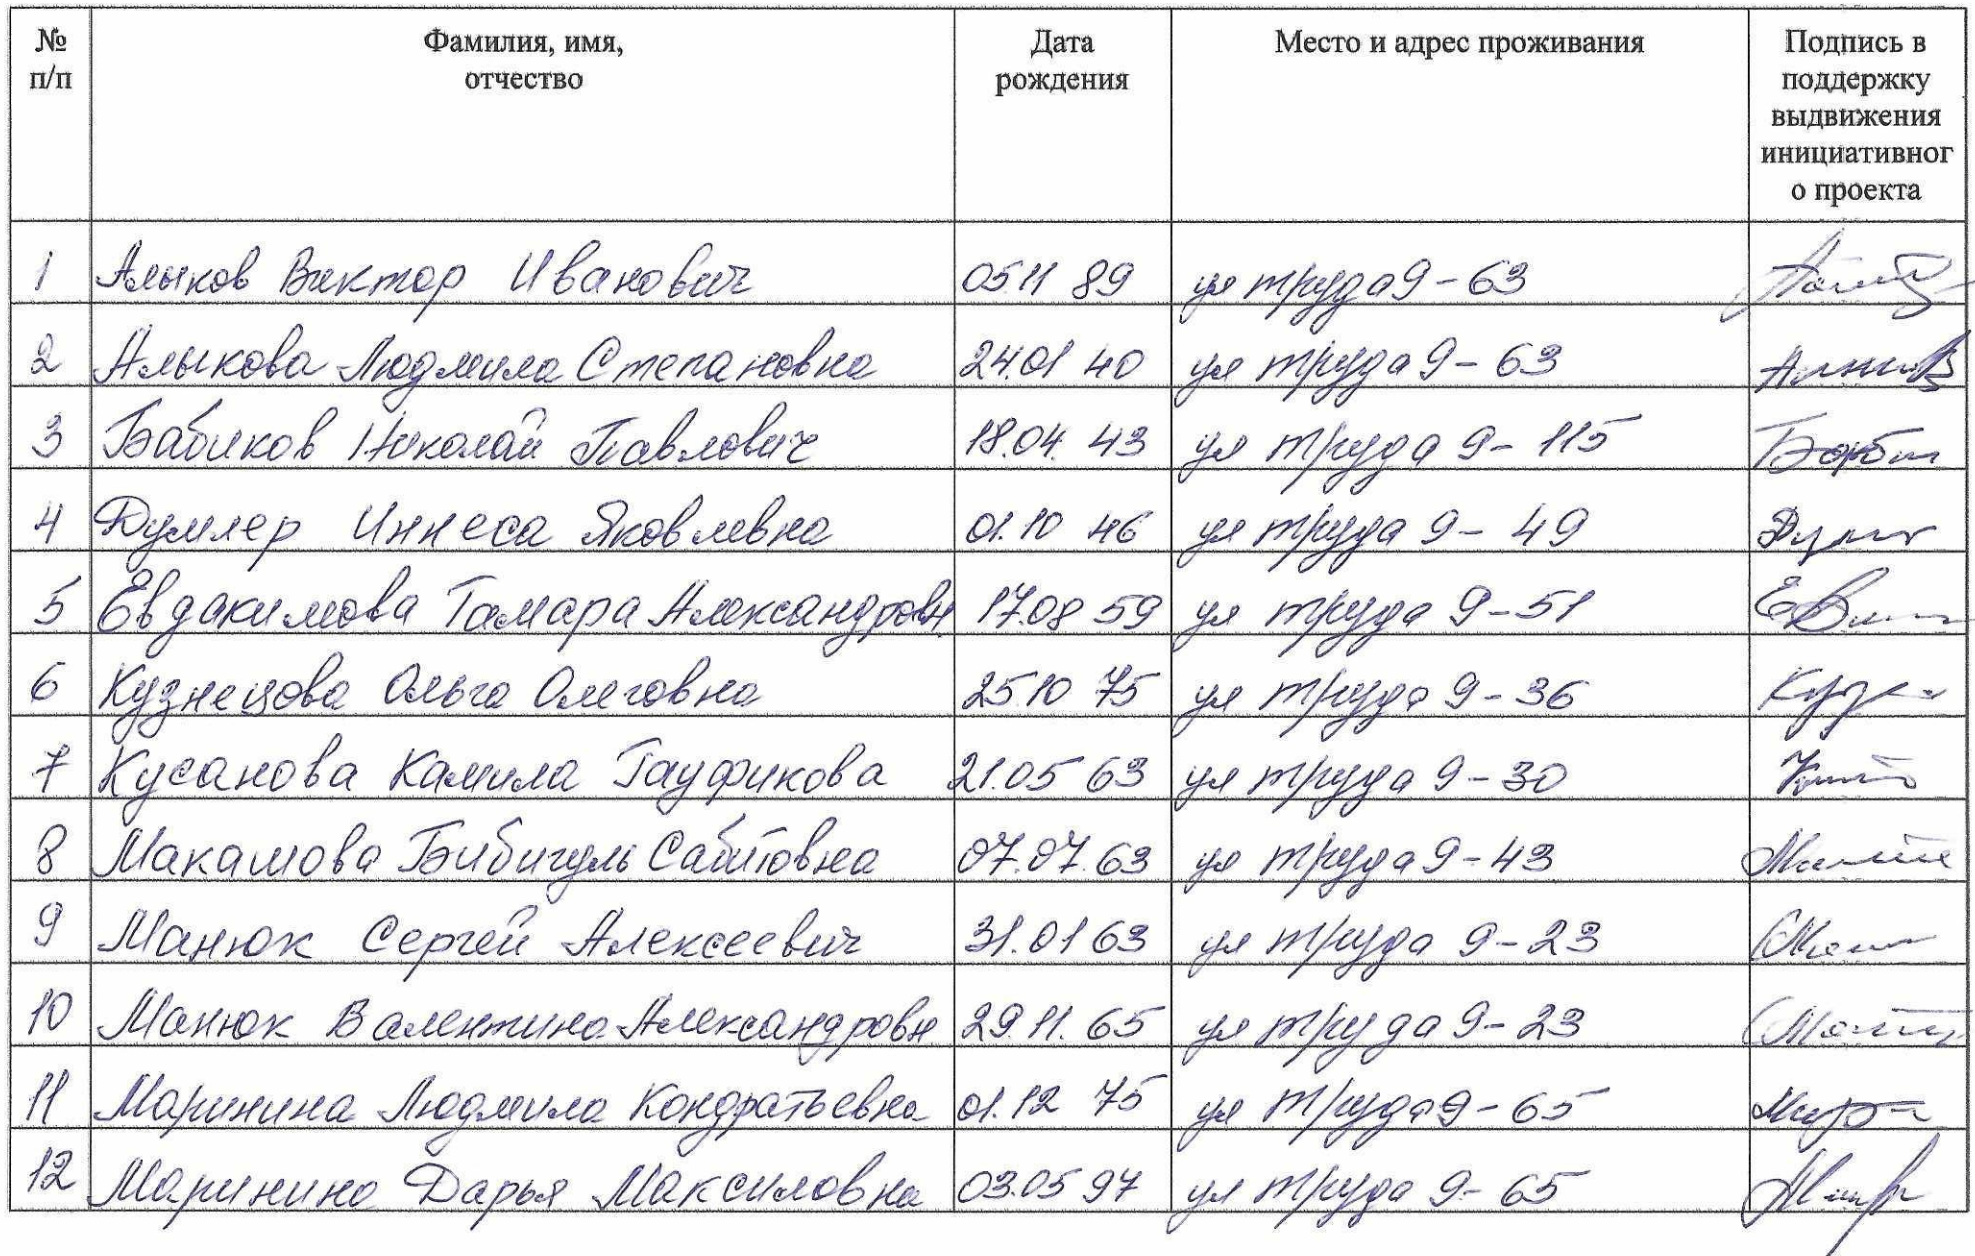 № п/п Фамилия, имя, отчество Дата рождения Место и адрес проживания Подпись в поддержку выдвижения инициативног о проекта
1 Алыков Виктор Иванович 05.11 89 ул труда 9-63
2 Алыкова Людмила Степановна 24.01 40 ул труда 9-63
3 Бабиков Николай Павлович 18.04. 43 ул труда 9-115
4 Думлер Иннеса Яковлевна 01.10 46 ул труда 9-49
5 Евдакимова Тамара Александровн 17.08 59 ул труда 9-51
6 Кузнецова Ольга Олеговна 25.10 75 ул труда 9-36
7 Кусанова Камила Тауфикова 21.05 63 ул труда 9-30
8 Макамова Бибигуль Сабитовна 07.07.63 ул труда 9-43
9 Манюк Сергей Алексеевич 31.01 63 ул труда 9-23
10 Манюк Валентина Александровн 29.11.65 ул труда 9-23
11 Маринина Людмила Кондратьевна 01.12 75 ул труда 9-65
12 Маринина Дарья Максимовна 03.05 97 ул труда 9-65